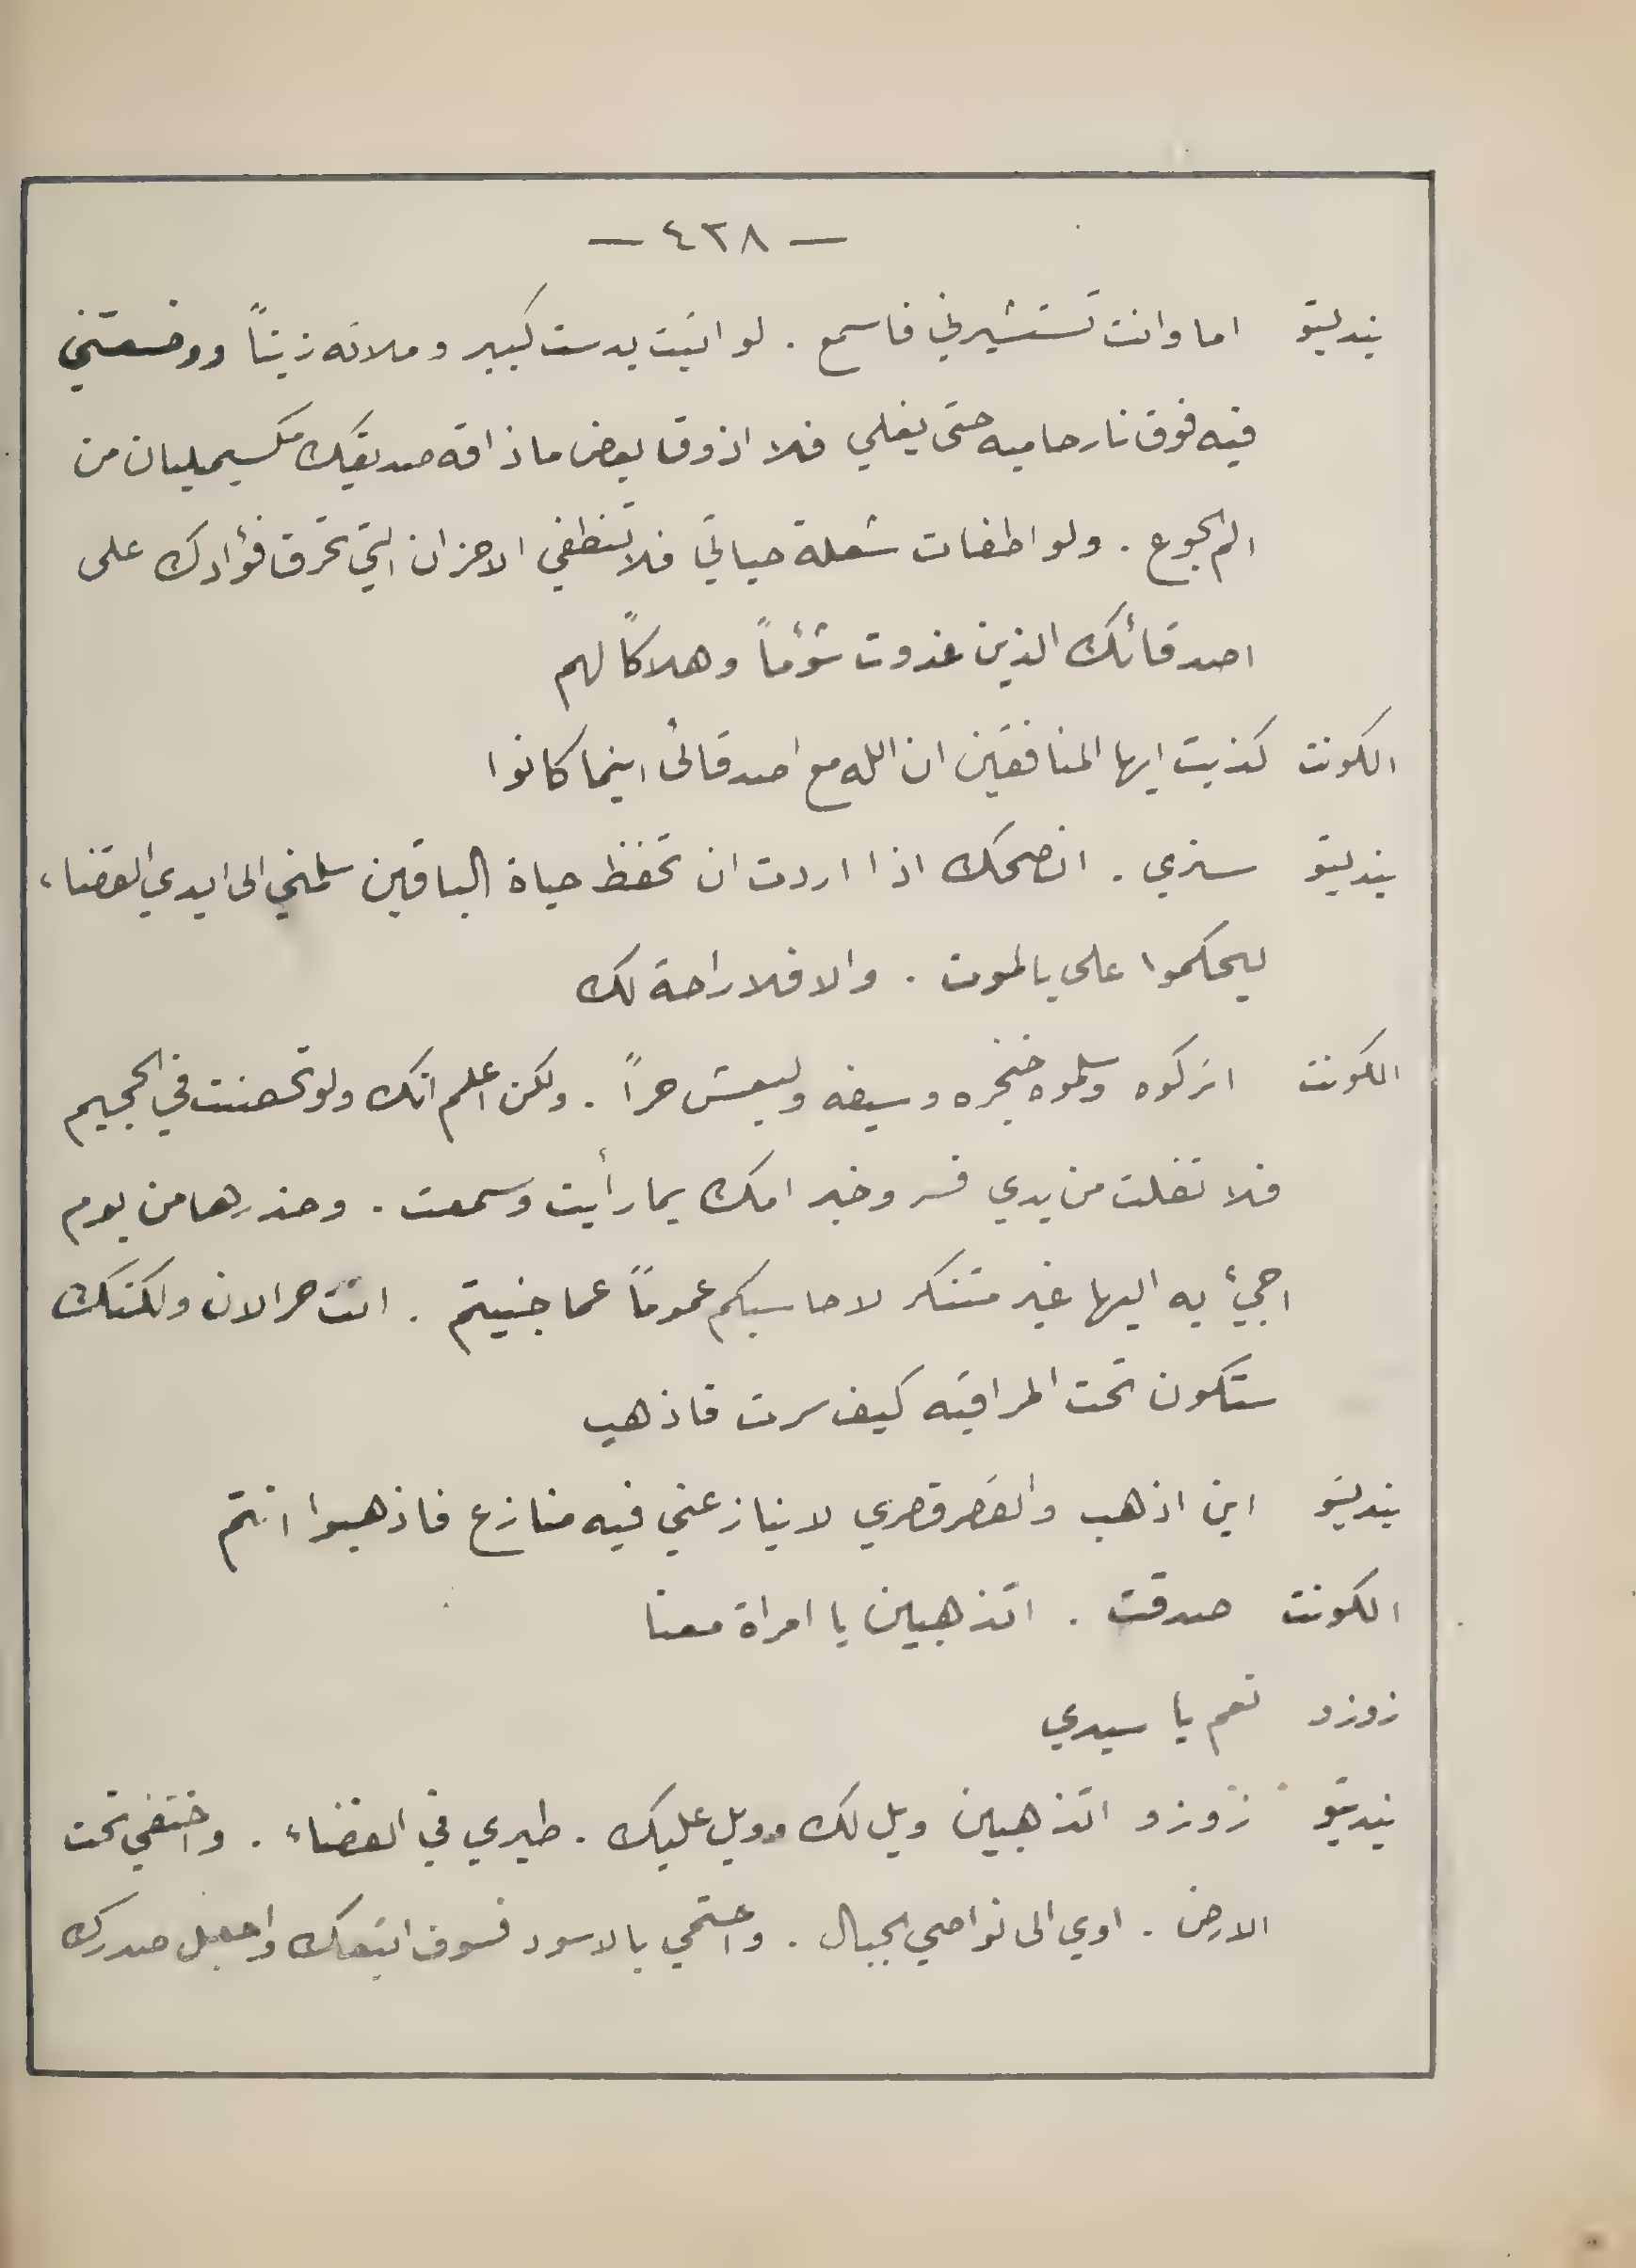 — ٤٣٨ —
بنديتو اما وانت تستشيرني فاسمع . لو اتيت بدست كبير وملاته زيتاً ووضعتني
فيه فوق نار حاميه حتى يغلي فلا اذوق بعض ما ذاقه صديقك مكسيمليان من
الم الجوع . ولو اطفات شعلة حياتي فلا تنطفي الاحزان التي تحرق فؤادك على
اصدقائك الذين غدوت شؤماً وهلاكاً لهم
الكونت كذبت ايها المنافقين ان الله مع اصدقائي اينما كانوا
بنديتو سنرى . انصحك اذا اردت ان تحفظ حياة الباقين سلمني الى ايدي القضاء
ليحكموا على بالموت . والا فلا راحة لك
الكونت اتركوه وسلموه خنجره وسيفه وليعش حراً . ولكن اعلم انك ولو تحصنت في الجحيم
فلا تفلت من يدي فسر وخبر امك بما رأيت وسمعت . وحذرها من يوم
اجيء به اليها غير متنكر لاحاسبكم عموماً عما جنيتم . انت حر الان ولكنك
ستكون تحت المراقبه كيف سرت فاذهب
بنديتو اين اذهب والقصر قصري لا ينازعني فيه منازع فاذهبوا انتم
الكونت صدقت . اتذهبين يا امراة معنا
زوزو نعم يا سيدي
بنديتو زوزو اتذهبين ويل لك وويل عليك . طيري في الفضاء . واختفي تحت
الارض . اوي الى نواصي الجبال . واحتمي بالاسود فسوف اتبعك واجعل صدرك